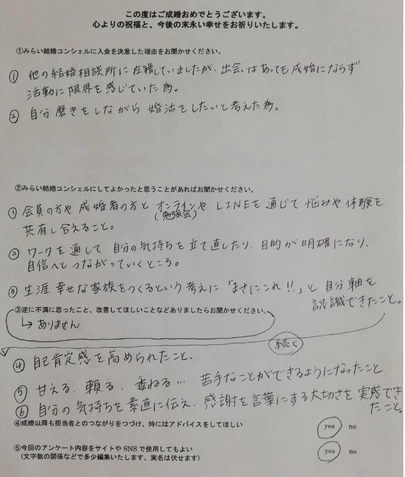 この度はご成婚おめでとうございます。
心よりの祝福と、今後の末永い幸せをお祈りいたします。
①みらい結婚コンシェルに入会を決意した理由をお聞かせください。
① 他の結婚相談所に在籍していましたが、出会いはあっても成婚にならず
活動に限界を感じていた為。
② 自分磨きをしながら 婚活をしたいと考えた為。
②みらい結婚コンシェルにしてよかったと思うことがあればお聞かせください。
① 会員の方や 成婚者の方と オンラインや LINEを 通じて 悩みや 体験を
(勉強会)
共有し合えること。
② ワークを通して 自分の気持ちを 立て直したり、目的が 明確になり、
自信へとつながっていくところ。
③ 生涯 幸せな家族をつくるという考えに「まさにこれ!!」と 自分軸を
認識できたこと。
③逆に不満に思ったこと、改善してほしいことなどありましたらお聞かせください。
→ありません
続く
④ 自己肯定感を高められたこと。
⑤ 甘える、頼る、委ねる… 苦手なことができるようになったこと
⑥ 自分の気持ちを素直に伝え、感謝を言葉にする大切さを実感でき
たこと。
④成婚以降も担当者とのつながりをつづけ、時にはアドバイスをしてほしい
yes no
⑤今回のアンケート内容をサイトやSNSで使用してもよい
(文字数の関係などで多少編集いたします、実名は伏せます)
yes no